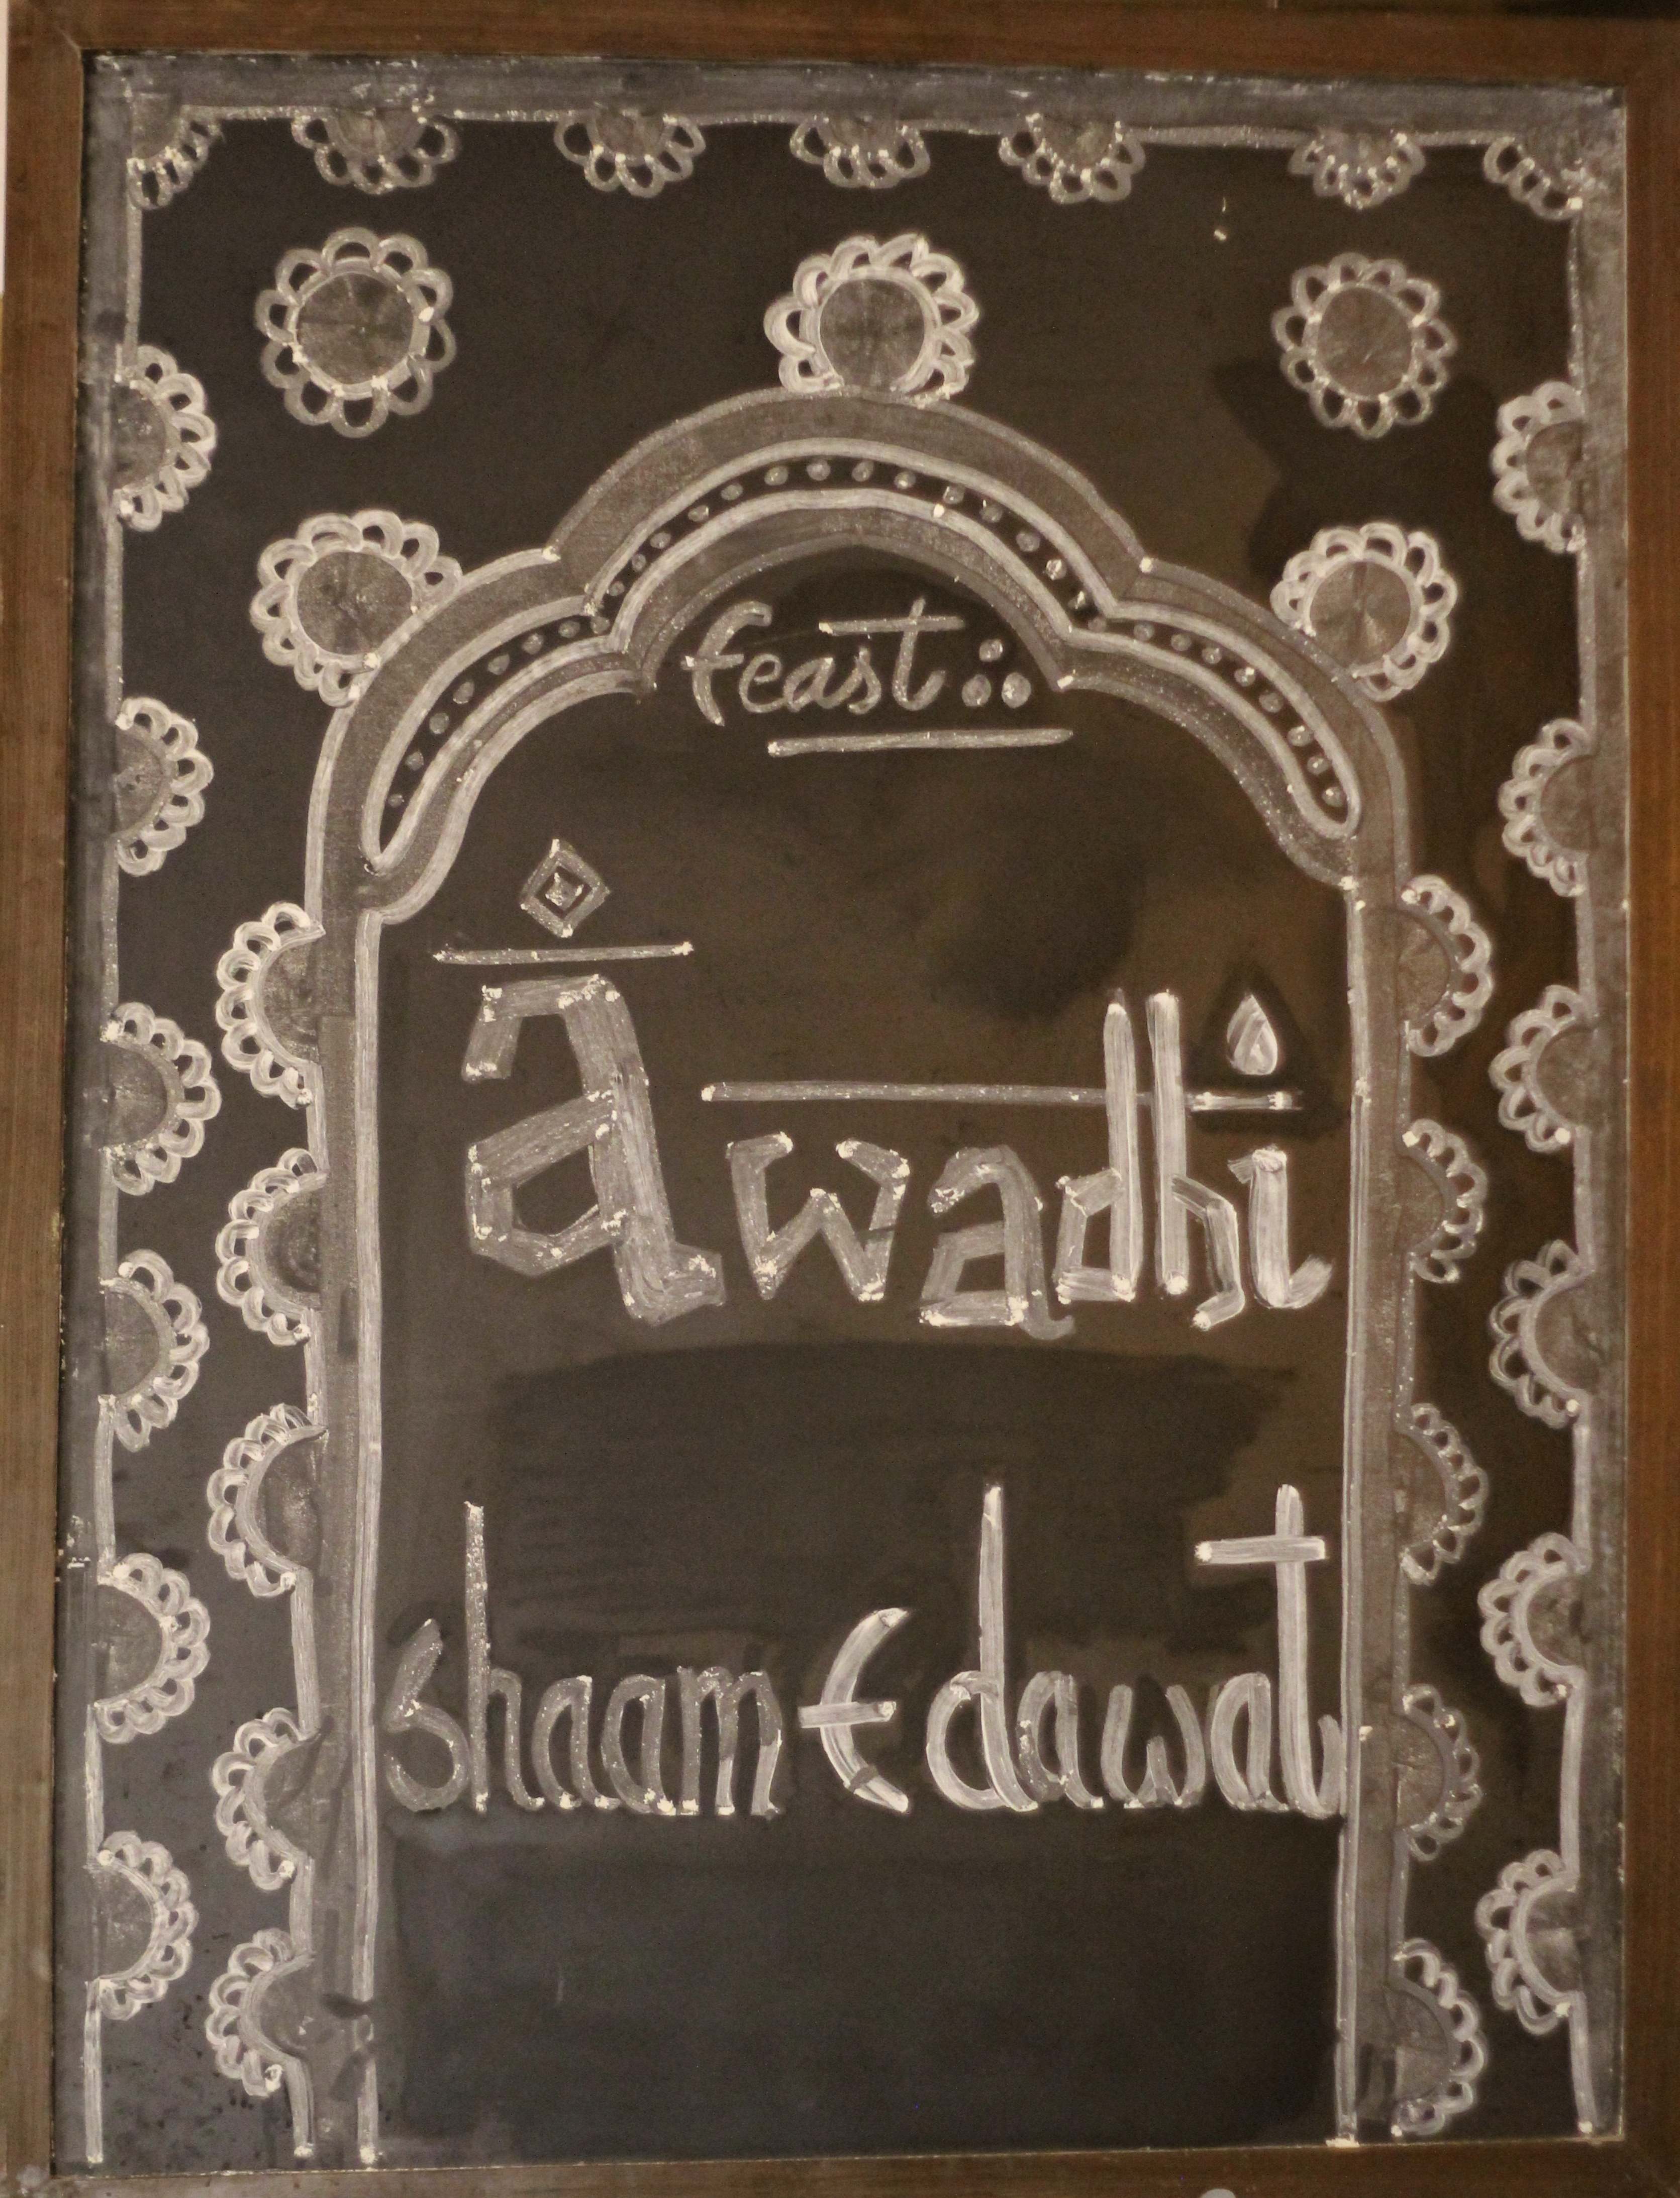 feast
Awadhi
shaam E dawat